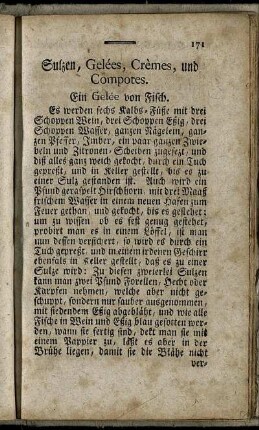 171
Sulzen, Gelées, Crèmes, und
Compotes.
Ein Gelée von Fisch.
Es werden sechs Kalbs-Füße mit drei
Schoppen Wein, drei Schoppen Eßig, drei
Schoppen Wasser, ganzen Nägelein, gan-
zen Pfeffer, Imber, ein paar ganzen Zwie-
beln und Zitronen-Scheiben zugesezt, und
diß alles ganz weich gekocht, durch ein Tuch
gepreßt, und in Keller gestellt, bis es zu
einer Sulz gestanden ist. Auch wird ein
Pfund geraspelt Hirschhorn mit drei Maaß
frischem Wasser in einem neuen Hafen zum
Feuer gethan, und gekocht, bis es gestehet;
um zu wissen ob es fest genug gestehet,
probirt man es in einem Löffel, ist man
nun dessen versichert, so wird es durch ein
Tuch gepreßt, und in einem irdenen Geschirr
ebenfals in Keller gestellt, daß es zu einer
Sulze wird: Zu diesen zweierlei Sulzen
kann man zwei Pfund Forellen, Hecht oder
Karpfen nehmen, welche aber nicht ge-
schuppt, sondern nur sauber ausgenommen,
mit siedendem Eßig abgebläht, und wie alle
Fische in Wein und Eßig blau gesotten wer-
den, wann sie fertig sind, dekt man sie mit
einem Pappier zu, läßt es aber in der
Brühe liegen, damit sie die Blähe nicht
ver-